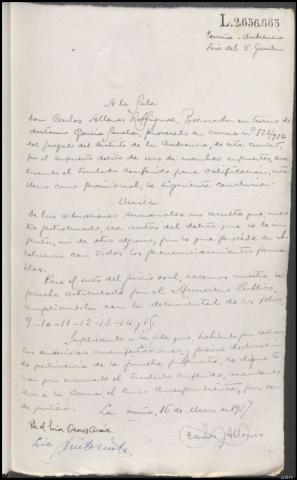 L.2,656.665
Coruña - Audiencia
A la Sala
Don Carlos Allones Raffignac, Procurador en turno de
Antonio García Sánchez, procesado en causa nº 521/936
del Juzgado del distrito de la Audiencia, de esta
por el supuesto delito de uso de nombre supuesto, eva-
cuando el traslado conferido para calificación, esta-
blece como provisional, la siguiente conclusión:
Unica
De las actuaciones sumariales no resulta que, nues-
tro patrocinado, sea autor del delito que se le im-
puta, ni de otro alguno, por lo que procede su ab-
solución con todos los pronunciamientos favora-
bles.
Para el acto del juicio oral, hacemos nuestra, la
prueba articulada por el Ministerio Público,
ampliándola con la documental de los folios
9-10-11-12-13-14 y 15.
Suplicando a la Sala que, habiendo por hechas
las anteriores manifestaciones, previa declaración
de pertinencia de la prueba propuesta, se digne te-
ner por evacuado el traslado conferido, mandando
dar a la causa el curso correspondiente, por ser
de justicia.
La Coruña, 16 de Marzo de 1937
Carlos Allones